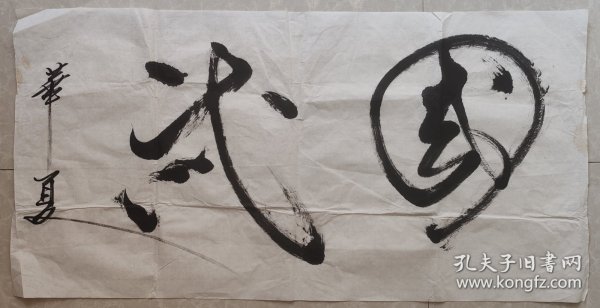 國武
華夏
孔夫子旧书网
www.kongfz.com